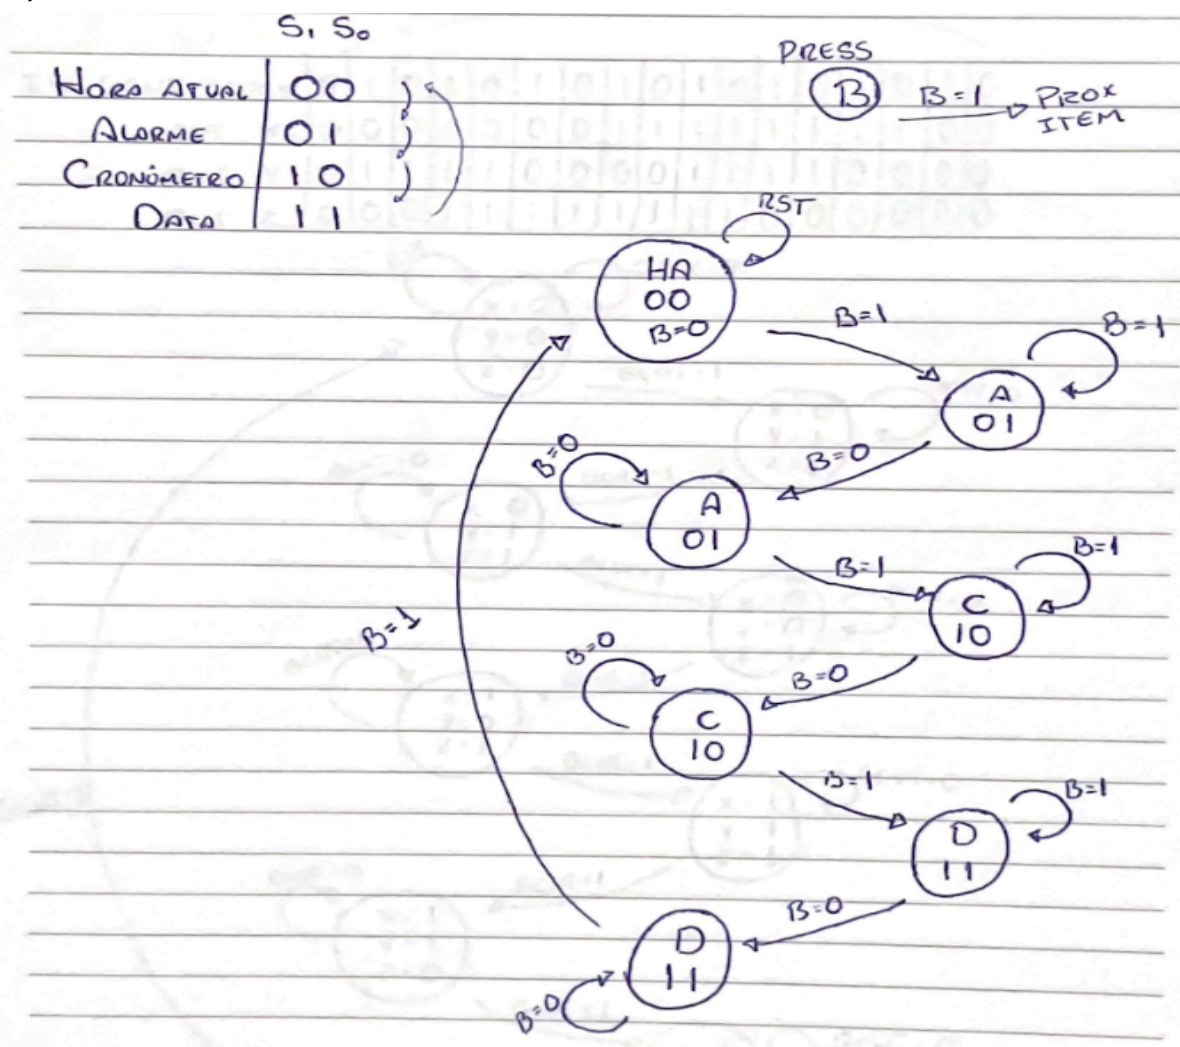 S₁ S₀
HORA ATUAL 00
ALARME 01
CRONÔMETRO 10
DATA 11
PRESS
B B=1 PROX
ITEM
RST
HA
00
B=0
B=1
B=1
A
01
B=0
B=0
A
01
B=1
B=1
C
10
B=1
B=0
B=0
C
10
B=1
B=1
D
11
B=0
D
11
B=0